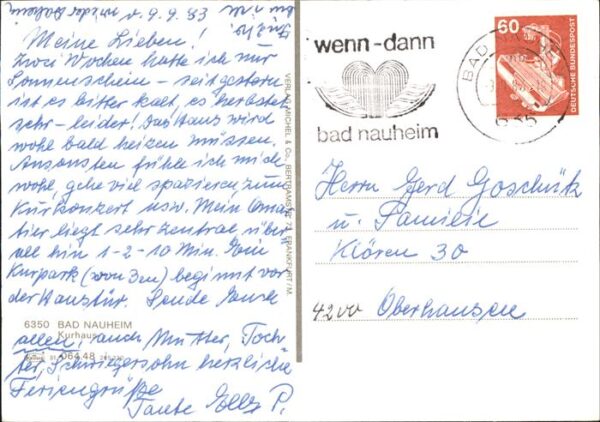 6.9.83
Meine Lieben!
Zwei Wochen hatte ich nur
Sonnenschein – seit gestern
ist es bitter kalt, es herbstet
sehr – leider! Das Haus wird
wohl bald heizen müssen.
Ansonsten fühle ich mich
wohl, gehe viel spazieren zum
Kurkonzert usw. Mein Quar
tier liegt sehr zentral über
all hin 1-2-10 Min. Ein
Kurpark (von 3en) beginnt vor
der Haustür. Sende Euch
6350 BAD NAUHEIM
Kurhaus
allen, auch Mutter, Toch
064.48
ter, Schwiegersohn herzliche
Feriengrüße
Tante Elly P.
VERLAG MICHEL & Co., BERTRAMSTR. 73, FRANKFURT/M.
wenn-dann
bad nauheim
BAD
60
DEUTSCHE BUNDESPOST
Herrn Gerd Goschütz
u. Familie
Klören 30
4200 Oberhausen